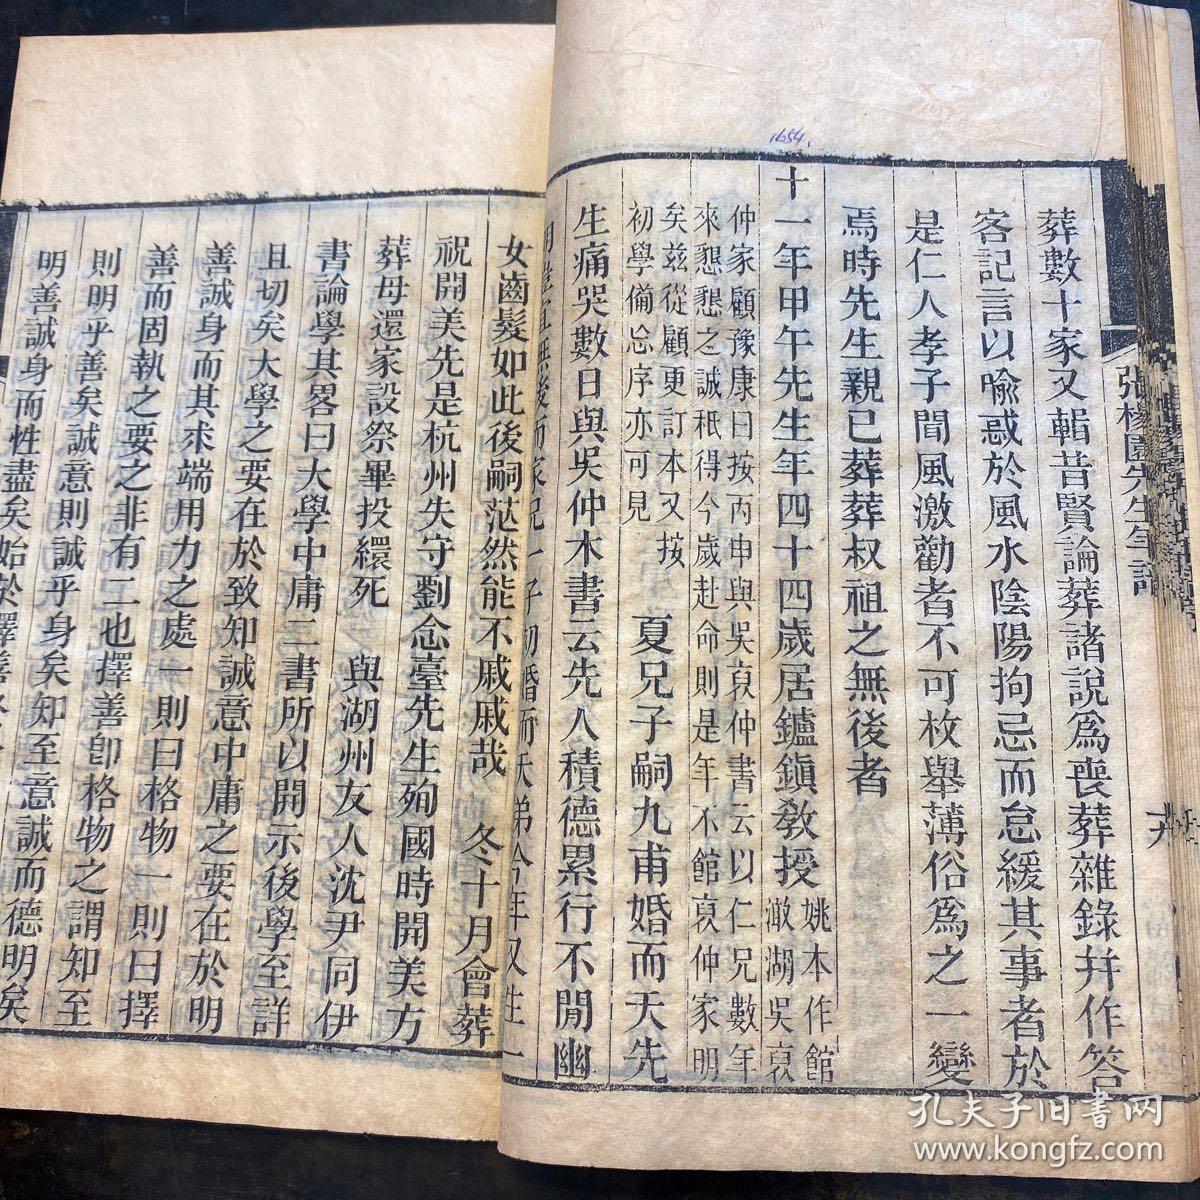 1654.
張楊園先生年譜
葬數十家又輯昔賢論葬諸說為喪葬雜錄并作答
客記言以喻惑於風水陰陽拘忌而怠緩其事者於
是仁人孝子聞風激勸者不可枚舉薄俗為之一變
焉時先生親已葬葬叔祖之無後者
十一年甲午先生年四十四歲居鑪鎮敎授
姚本作館
澉湖吳裒
仲家顧豫康曰按丙申與吳裒仲書云以仁兄數年
來懇懇之誠秪得今歲赴命則是年不館裒仲家明
矣兹從顧更訂本又按
初學備忘序亦可見
夏兄子嗣九甫婚而夭先
生痛哭數日與吳仲木書云先人積德累行不閒幽
後而家兄一子初婚而夭弟今年又生一
女齒髮如此後嗣茫然能不戚戚哉 冬十月會葬
祝開美先是杭州失守劉念臺先生殉國時開美方
葬母還家設祭畢投繯死 與湖州友人沈尹同伊
書論學其畧曰大學中庸二書所以開示後學至詳
且切矣大學之要在於致知誠意中庸之要在於明
善誠身而其求端用力之處一則曰格物一則曰擇
善而固執之要之非有二也擇善卽格物之謂知至
則明乎善矣誠意則誠乎身矣知至意誠而德明矣
明善誠身而性盡矣始於擇善
孔夫子旧书网
www.kongfz.com